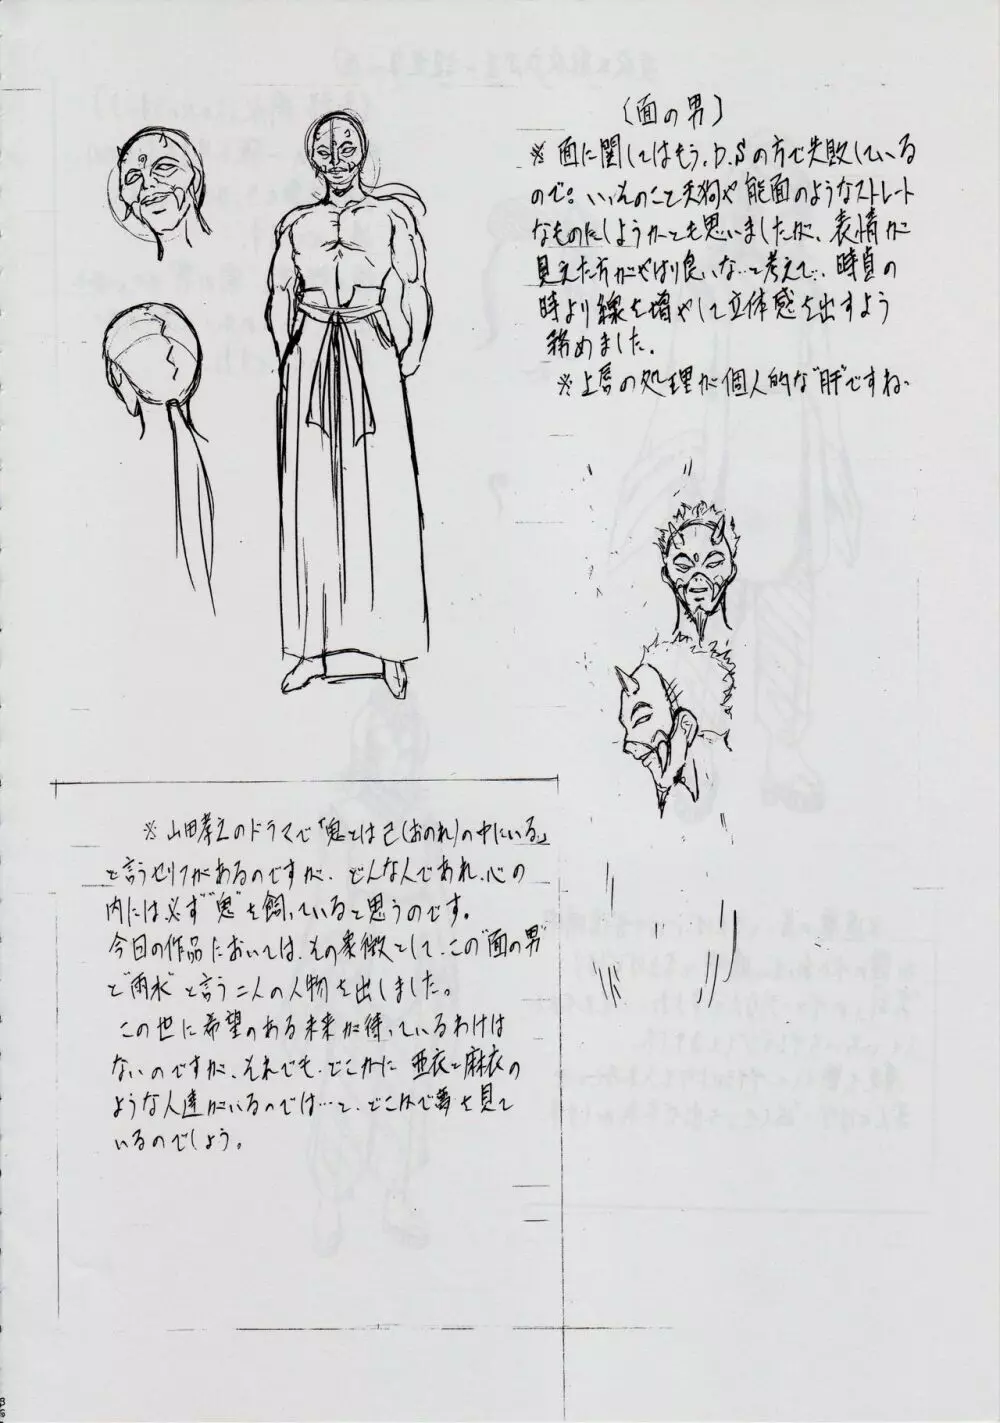 (面の男)
※面に関してはもう、D.Sの方で失敗している
ので。いっそのこと天狗や能面のようなストレート
なものにしようかとも思いましたが、表情が
見えた方がやはり良いな…と考えて、時貞の
時より線を増やして立体感を出すよう
務めました。
※上唇の処理が個人的な"肝"ですね。
※山田孝之のドラマで「鬼とは己(おのれ)の中にいる」
と言うセリフがあるのですが、どんな人であれ、心の
内には必ず"鬼"を飼っていると思うのです。
今回の作品においては、その象徴として、この"面の男"
と"雨水"と言う二人の人物を出しました。
この世に希望のある未来が待っているわけは
ないのですが、それでも、どこかに亜衣と麻衣の
ような人達がいるのでは…と、どこかで夢を見て
いるのでしょう。